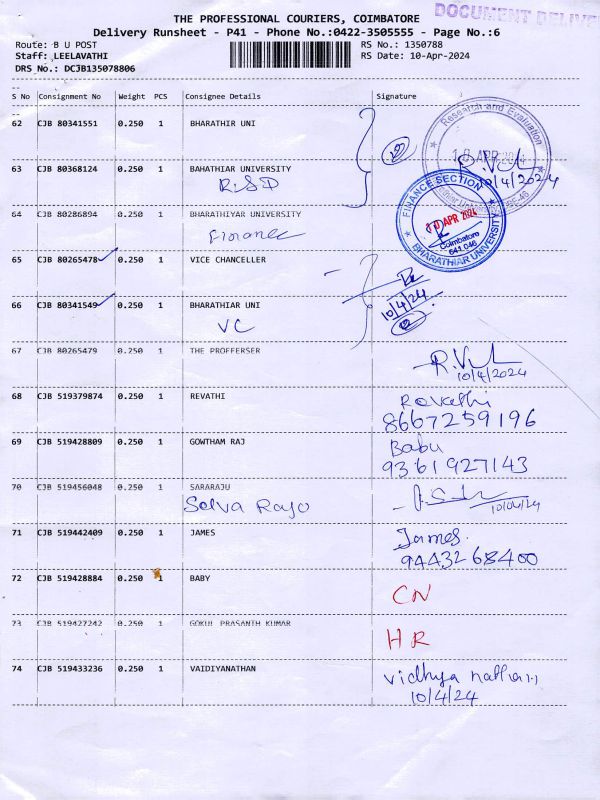 DOCUMENT DELIVE
THE PROFESSIONAL COURIERS, COIMBATORE
Delivery Runsheet - P41 - Phone No.:0422-3505555 - Page No.:6
Route: B U POST
RS No.: 1350788
Staff: LEELAVATHI
RS Date: 10-Apr-2024
DRS No.: DCJB135078806
S No Consignment No Weight PCS Consignee Details Signature
62 CJB 80341551 0.250 1 BHARATHIR UNI
Research and Evaluation
10 APR 2024
10/4/2024
63 CJB 80368124 0.250 1 BAHATHIAR UNIVERSITY
R&D
64 CJB 80286894 0.250 1 BHARATHIYAR UNIVERSITY
Finance
FINANCE SECTION
10 APR 2024
Coimbatore
641 046
BHARATHIAR UNIVERSITY
65 CJB 80265478 0.250 1 VICE CHANCELLER
10/4/24
66 CJB 80341549 0.250 1 BHARATHIAR UNI
VC
67 CJB 80265479 0.250 1 THE PROFFERSER
10/4/2024
68 CJB 519379874 0.250 1 REVATHI
Revathi
8667259196
69 CJB 519428809 0.250 1 GOWTHAM RAJ
Babu
9361927143
70 CJB 519456048 0.250 1 SARARAJU
Selva Rajo
10/04/24
71 CJB 519442409 0.250 1 JAMES
James.
9443268400
72 CJB 519428884 0.250 1 BABY
CN
73 CJB 519427242 0.250 1 GOKUL PRASANTH KUMAR
HR
74 CJB 519433236 0.250 1 VAIDIYANATHAN
Vidhya nathan
10/4/24